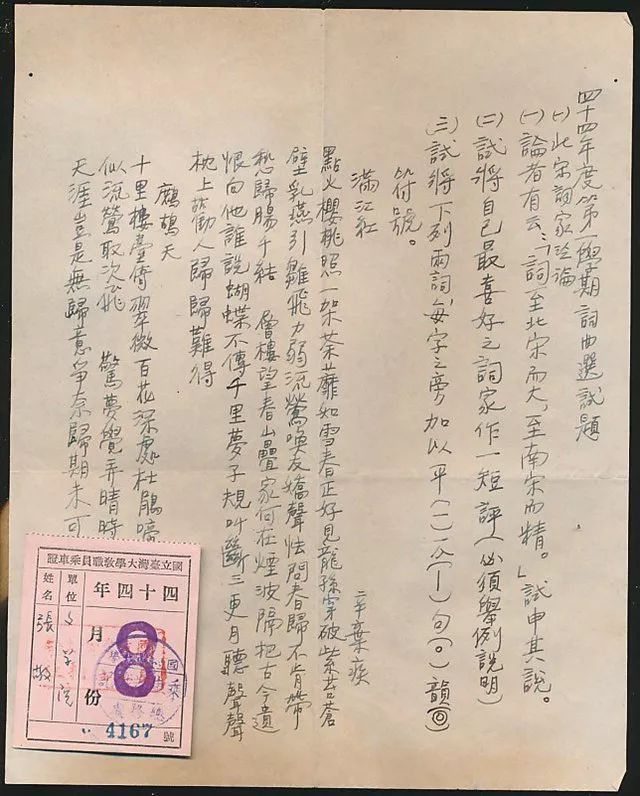 四十四年度第一學期詞曲選試題
(一)北宋詞家論論
(一)論者有云：「詞至北宋而大，至南宋而精。」試申其說。
(二)試將自己最喜好之詞家作一短評(必須舉例說明)
(三)試將下列兩詞，每字之旁加以平(一)仄(｜)句(。)韻(◎)
符號。
滿江紅
辛棄疾
點火櫻桃照一架荼蘼如雪春正好見龍孫穿破紫苔蒼
壁乳燕引雛飛力弱流鶯喚友嬌聲怯問春歸不肯帶
愁歸腸千結 層樓望春山疊家何在煙波隔把古今遺
恨向他誰說蝴蝶不傳千里夢子規叫斷三更月聽聲聲
枕上勸人歸歸難得
鷓鴣天
十里樓臺倚翠微百花深處杜鵑啼
似流鶯取次飛 驚夢覺弄晴時
天涯豈是無歸意爭奈歸期未可
國立臺灣大學教職員乘車證
四十四年
8
月份
單位
文學院
姓名
張敬
4167
號